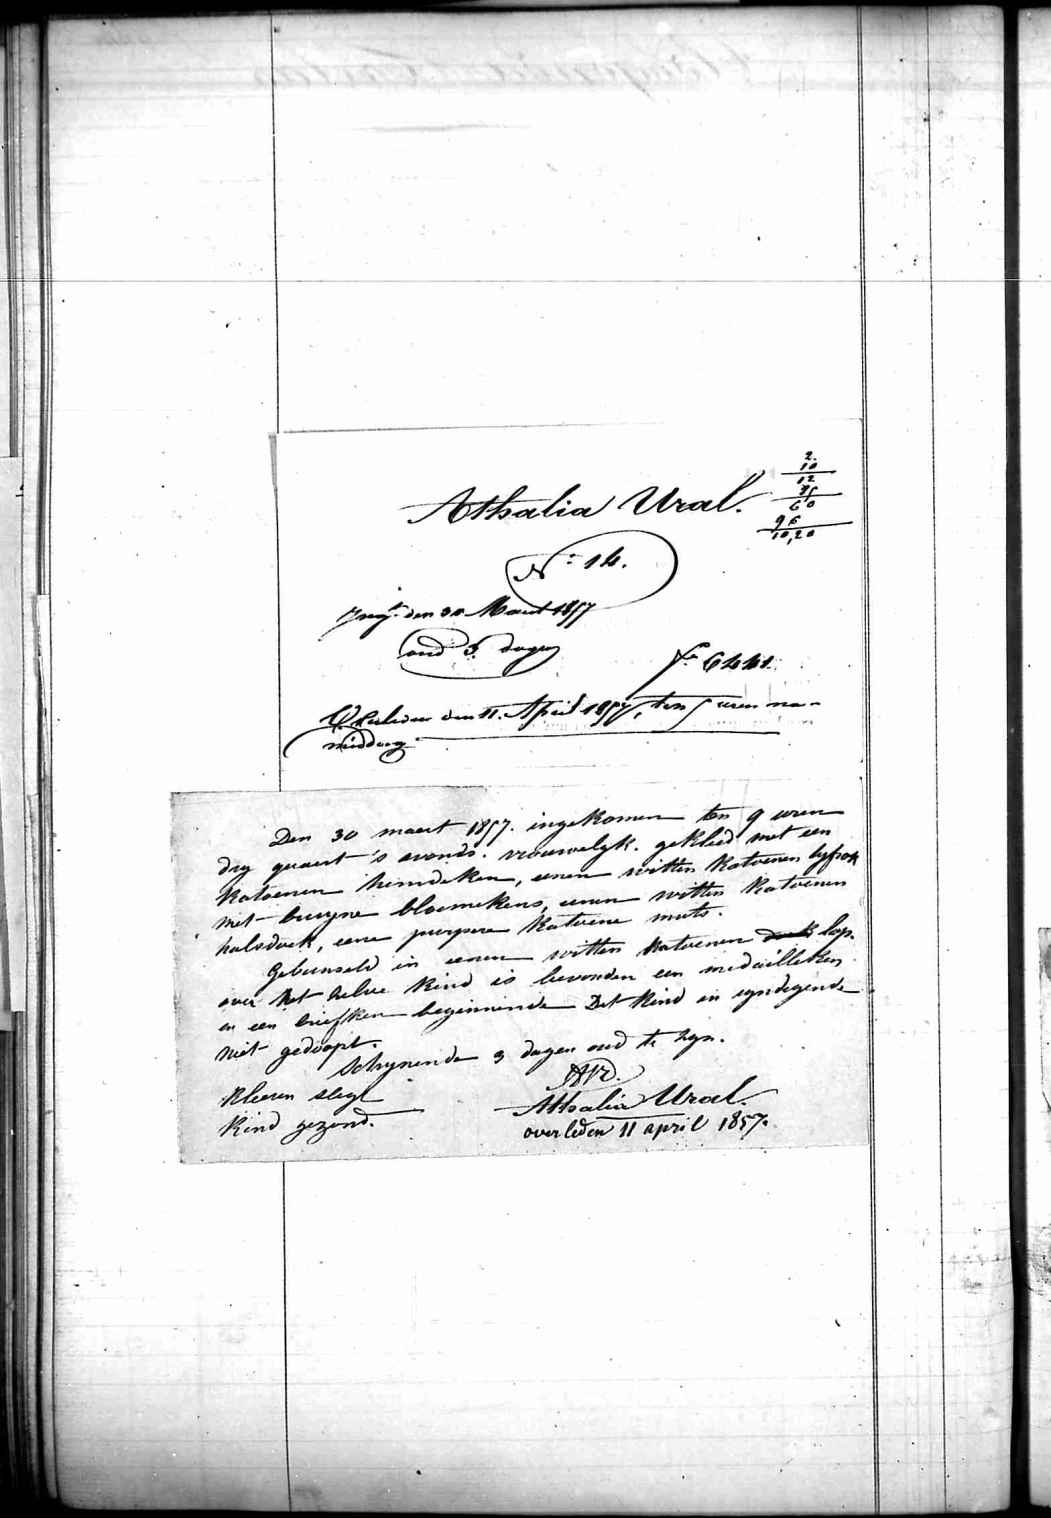 Athalia Ural.
2.
10
12
75
60
96
10,20
N.° 14.
den 30 Maart 1857
oud 3. dagen
f.° 6441.
Overleden den 11. April 1857, ten 5 uren na-
middag
Den 30 maert 1857. ingekomen ten 9 uren
dry quaert 's avonds. vrouwelyk. gekleed met een
katoenen hemdeken, eenen witten katoenen lyfrok
met bruyne bloemekens, eenen witten katoenen
halsdoek, eene purpere katoene muts.
Gebunseld in eenen witten katoenen doek lap.
over het zelve kind is bevonden een medailleken
en een briefken beginnende Det kind en eyndigende
niet gedoopt.
Schynende 3 dagen oud te zyn.
Kleeren slegt
Kind gezond.
Athalia Ural.
overleden 11 april 1857.